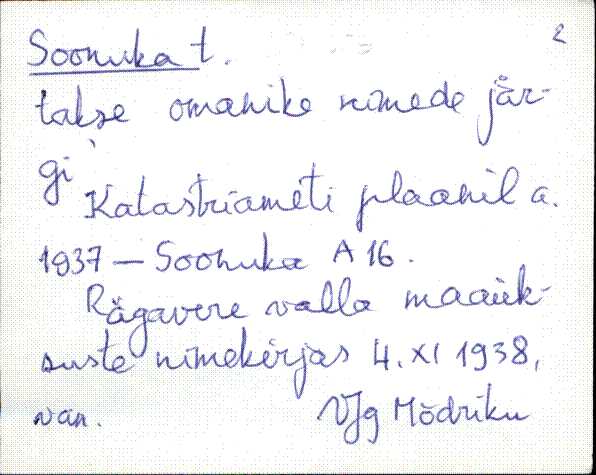 Soonuka t. 2
takse omanike nimede jär-
gi
Katastriameti plaanil a.
1937 — Soonuka A 16.
Rägavere valla maaük-
suste nimekirjas 4. XI 1938,
van. VJg Mõdriku